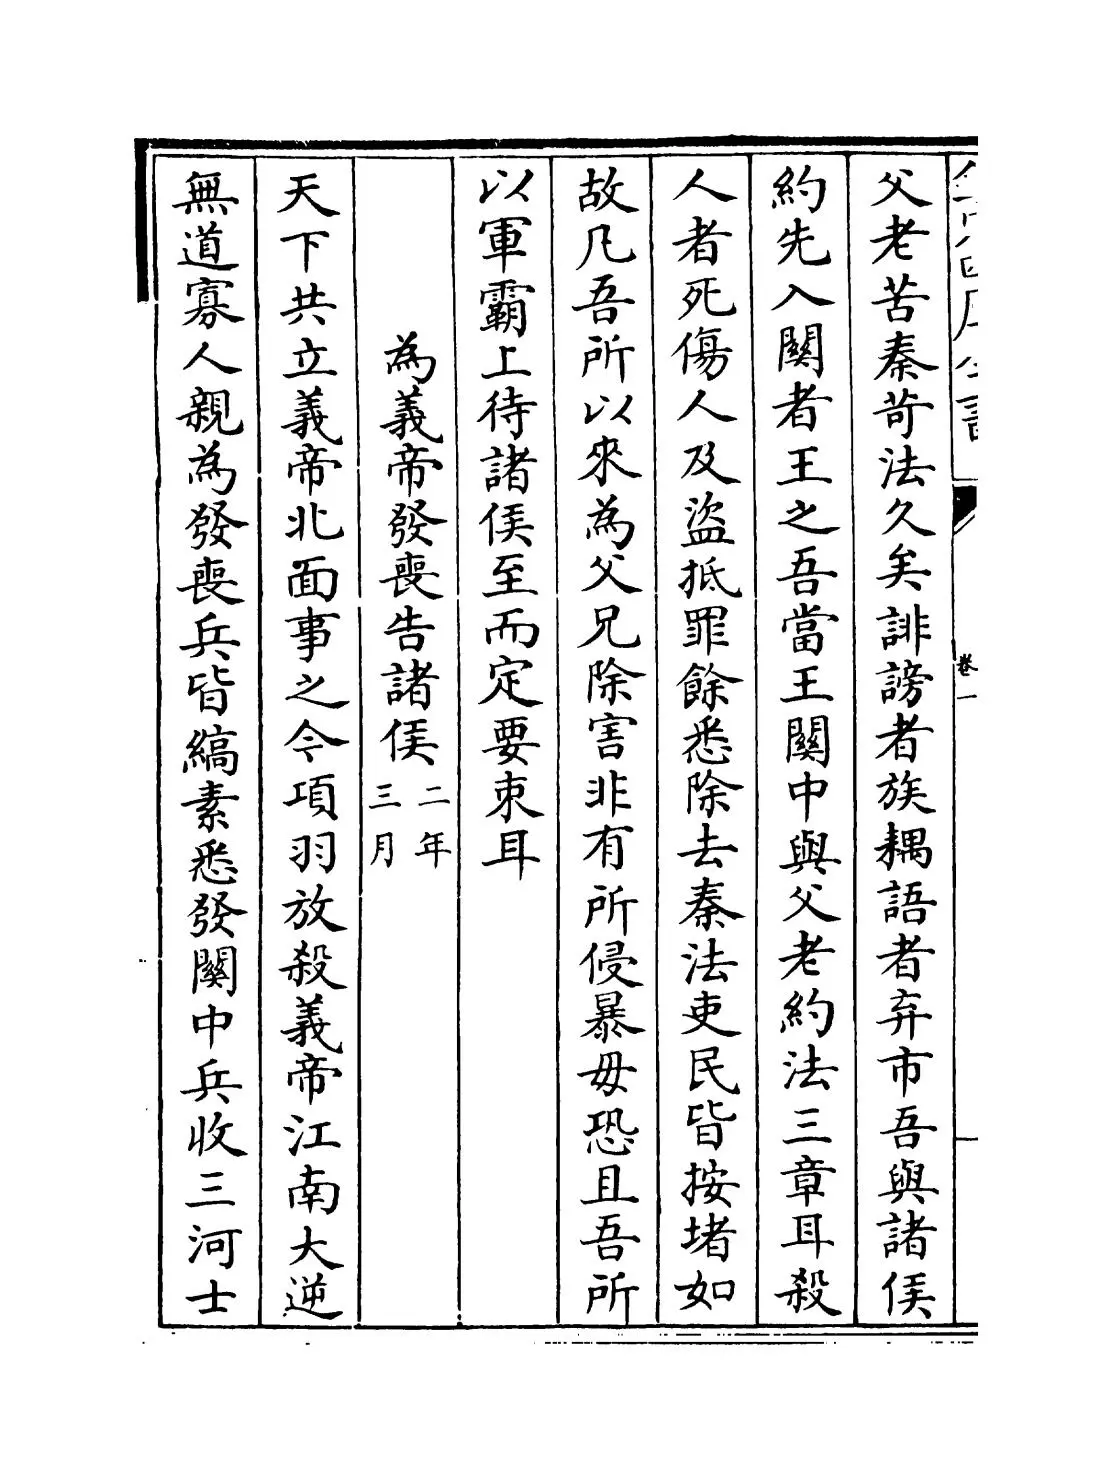 父老苦秦苛法久矣誹謗者族耦語者弃市吾與諸侯
約先入關者王之吾當王關中與父老約法三章耳殺
人者死傷人及盜抵罪餘悉除去秦法吏民皆按堵如
故凡吾所以來為父兄除害非有所侵暴毋恐且吾所
以軍霸上待諸侯至而定要束耳
為義帝發喪告諸侯二年三月
天下共立義帝北面事之今項羽放殺義帝江南大逆
無道寡人親為發喪兵皆縞素悉發關中兵收三河士
卷一